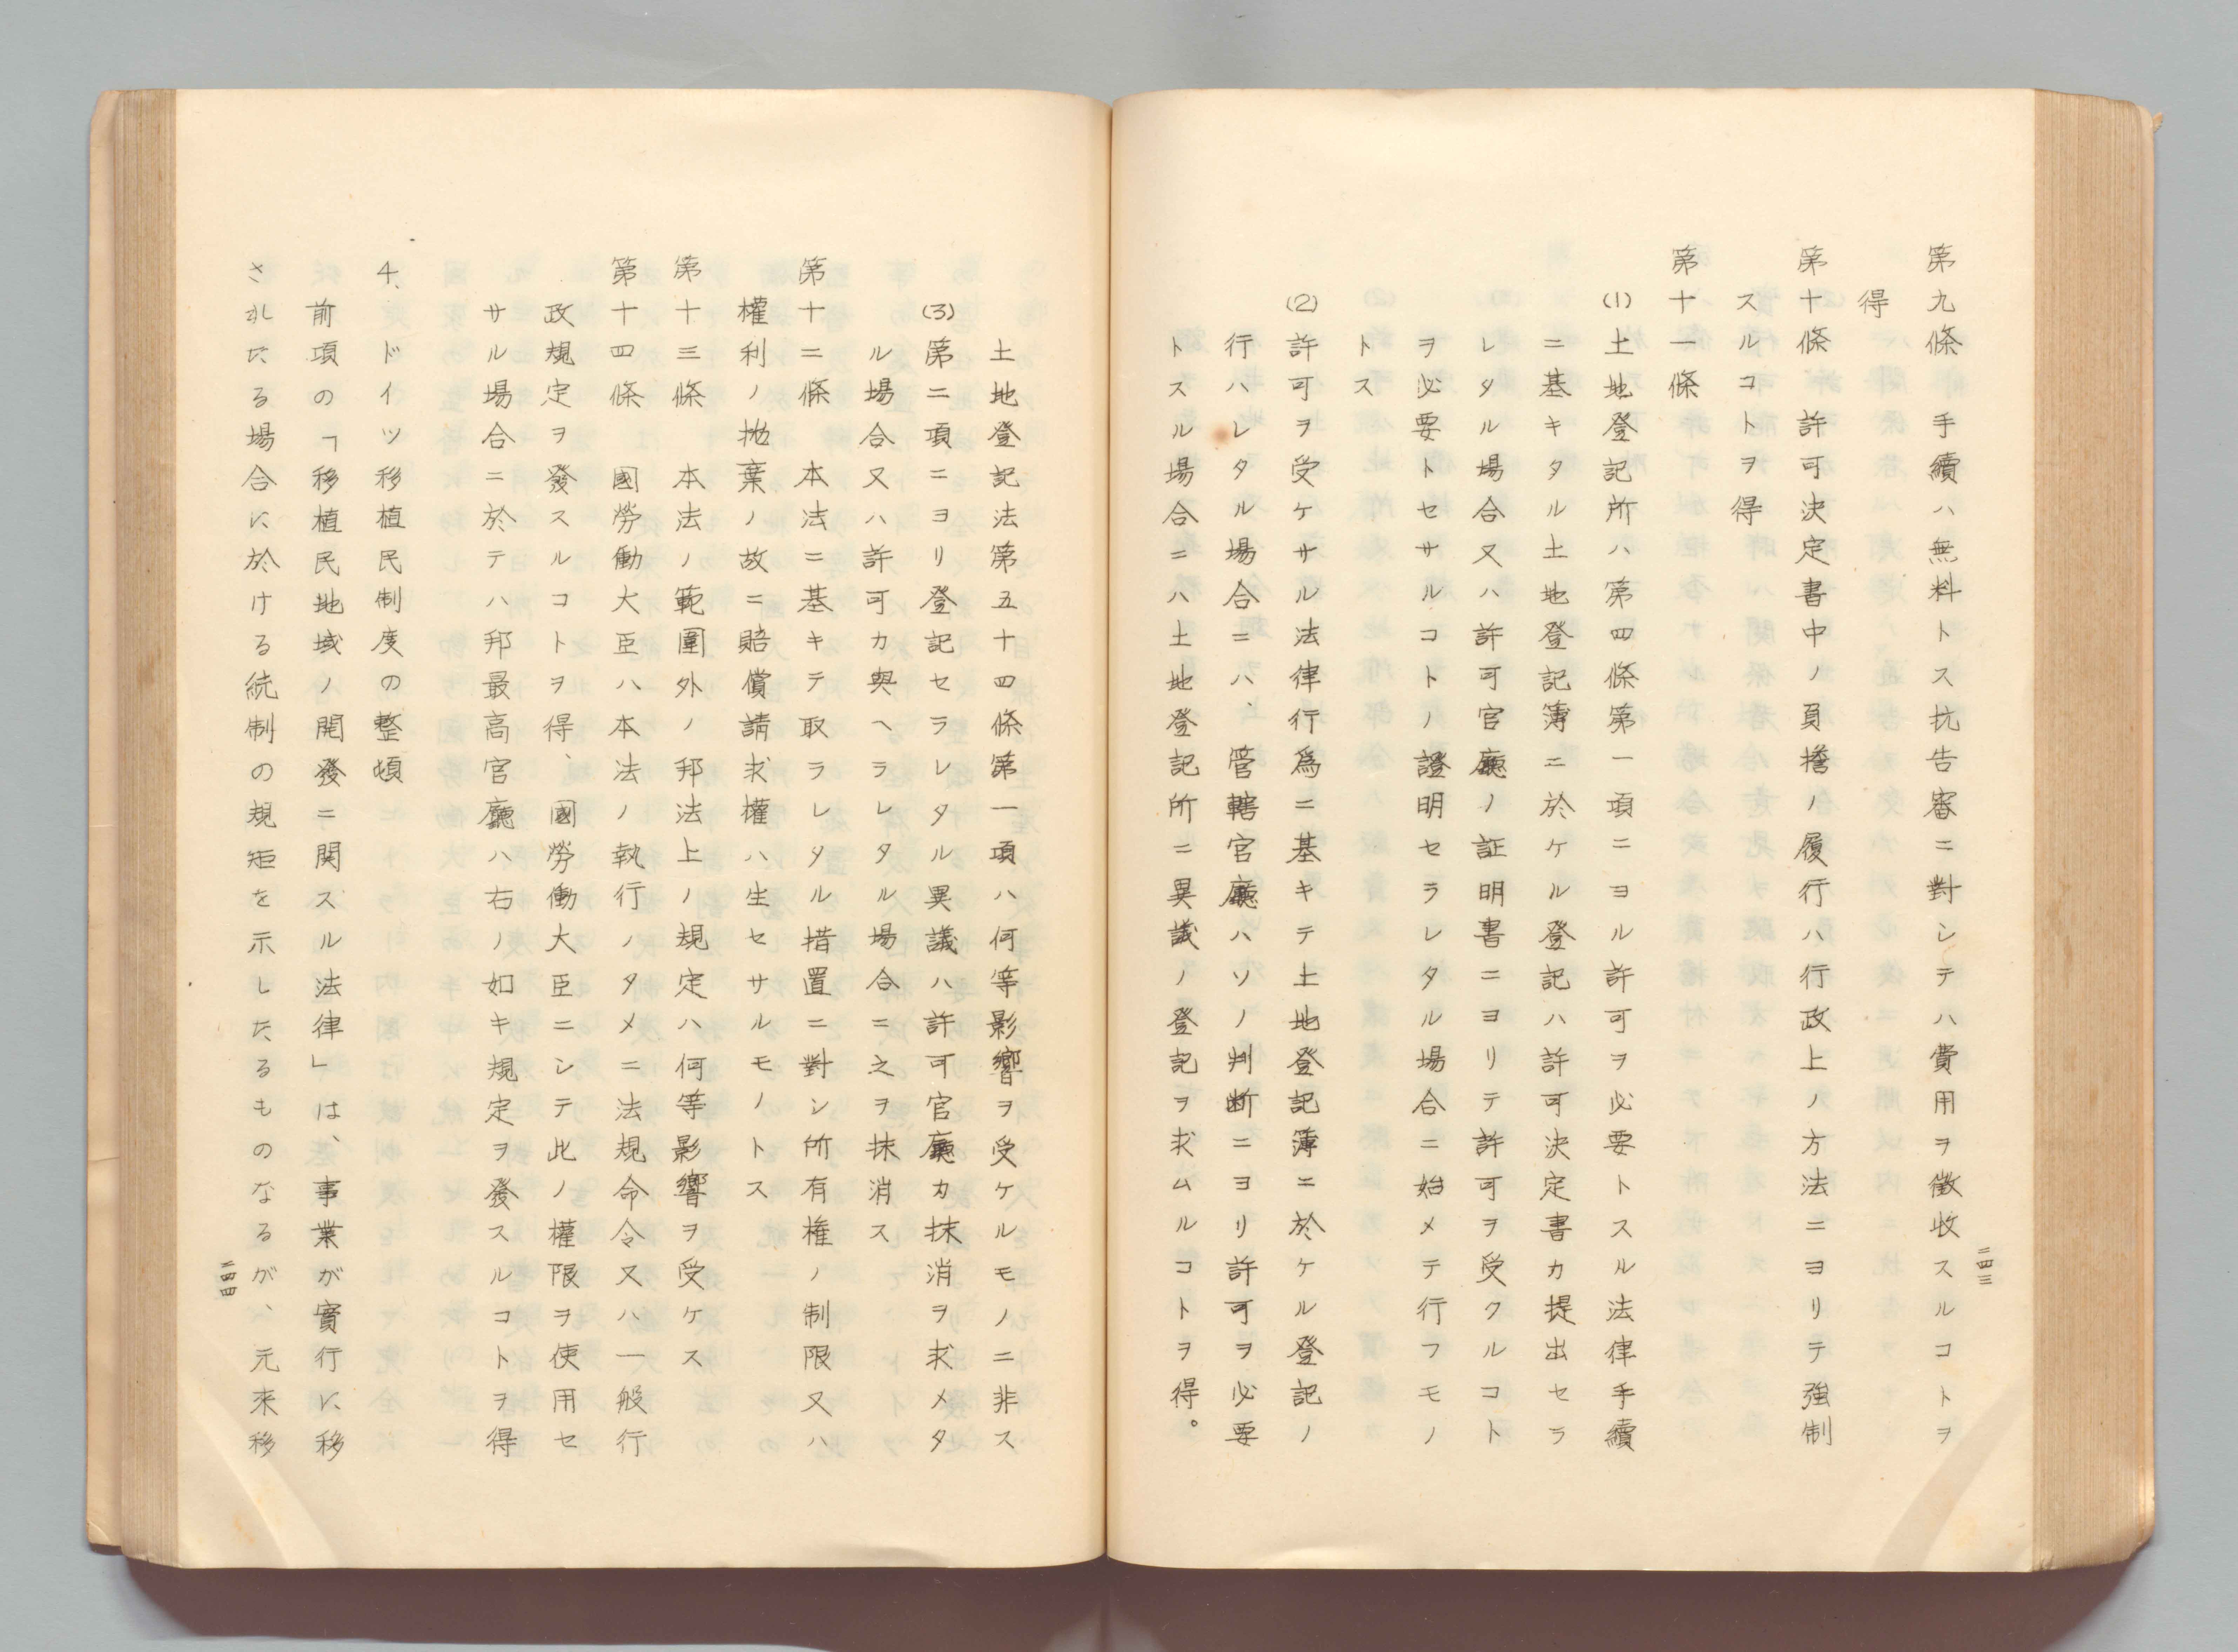 第九條　手續ハ無料トス抗告審ニ對シテハ費用ヲ徴收スルコトヲ
得
第十條　許可決定書中ノ負擔ノ履行ハ行政上ノ方法ニヨリテ強制
スルコトヲ得
第十一條
(1)土地登記所ハ第四條第一項ニヨル許可ヲ必要トスル法律手續
ニ基キタル土地登記簿ニ於ケル登記ハ許可決定書カ提出セラ
レタル場合又ハ許可官廳ノ証明書ニヨリテ許可ヲ受クルコト
ヲ必要トセサルコトノ證明セラレタル場合ニ始メテ行フモノ
トス
(2)許可ヲ受ケサル法律行爲ニ基キテ土地登記簿ニ於ケル登記ノ
行ハレタル場合ニハ、管轄官廳ハソノ判断ニヨリ許可ヲ必要
トスル場合ニハ土地登記所ニ異議ノ登記ヲ求ムルコトヲ得。
二四三
土地登記法第五十四條第一項ハ何等影響ヲ受ケルモノニ非ス
(3)第二項ニヨリ登記セラレタル異議ハ許可官廳カ抹消ヲ求メタ
ル場合又ハ許可カ與ヘラレタル場合ニ之ヲ抹消ス
第十二條　本法ニ基キテ取ラレタル措置ニ對シ所有権ノ制限又ハ
權利ノ抛棄ノ故ニ賠償請求權ハ生セサルモノトス
第十三條　本法ノ範圍外ノ邦法上ノ規定ハ何等影響ヲ受ケス
第十四條　國勞働大臣ハ本法ノ執行ノタメニ法規命令又ハ一般行
政規定ヲ發スルコトヲ得、國勞働大臣ニシテ此ノ權限ヲ使用セ
サル場合ニ於テハ邦最高官廳ハ右ノ如キ規定ヲ發スルコトヲ得
4、ドイツ移植民制度の整頓
前項の「移植民地域ノ開發ニ関スル法律」は、事業が實行に移
された る場合に於ける統制の規矩を示したるものなるが、元来移
二四四